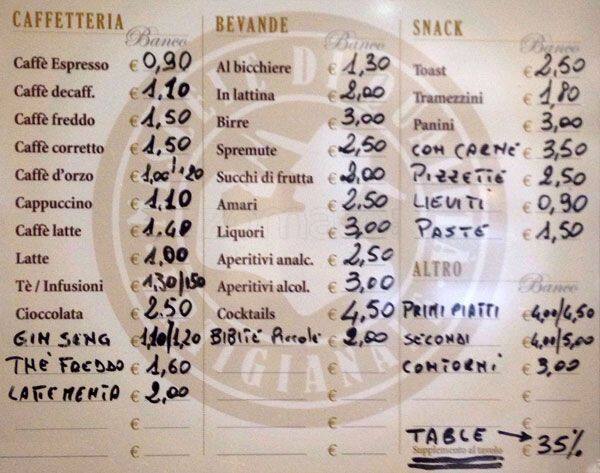 CAFFETTERIA
Banco
Caffè Espresso € 0,90
Caffè decaff. € 1,10
Caffè freddo € 1,50
Caffè corretto € 1,50
Caffè d'orzo € 1,00/1,20
Cappuccino € 1.10
Caffè latte € 1.40
Latte € 1,00
Tè / Infusioni € 1,30/1,50
Cioccolata € 2.50
GINSENG € 1,10/1,20
THÈ FREDDO € 1,60
LATTE MENTA € 2,00
€
€
BEVANDE
Banco
Al bicchiere € 1,30
In lattina € 2,00
Birre € 3,00
Spremute € 2,50
Succhi di frutta € 2,00
Amari € 2.50
Liquori € 3,00
Aperitivi analc. € 2,50
Aperitivi alcol. € 3,00
Cocktails € 4,50
BIBITE Piccole € 2,00
€
€
€
€
SNACK
Banco
Toast € 2,50
Tramezzini € 1,80
Panini € 3,00
CON CARNE € 3,50
PIZZETTE € 2,50
LIEVITI € 0,90
PASTE € 1,50
ALTRO
Banco
PRIMI PIATTI € 4,00/4,50
SECONDI € 4,00/5,00
CONTORNI € 3,00
€
€
TABLE → 35%
Supplemento al tavolo €